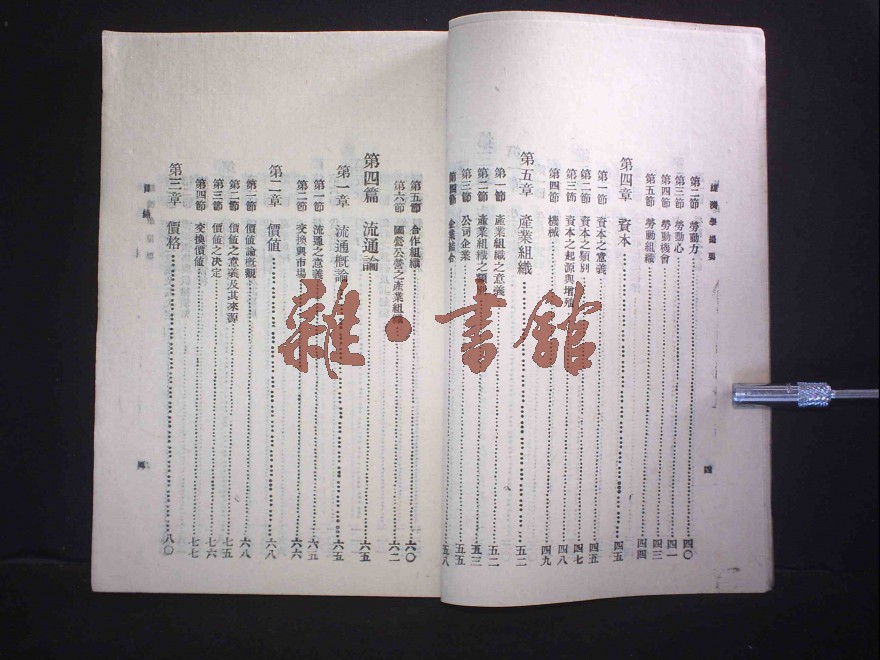 經濟學綱要
第二節 勞動力 四〇
第三節 勞動心 四一
第四節 勞動機會 四三
第五節 勞動組織 四四
第四章 資本 四五
第一節 資本之意義 四五
第二節 資本之類別 四七
第三節 資本之起源與增殖 四八
第四節 機械 四九
第五章 產業組織 五二
第一節 產業組織之意義 五二
第二節 產業組織之類別 五三
第三節 公司企業 五五
第四節 企業結合 五八
四
第五節 合作組織 六〇
第六節 國營公營之產業組織 六二
第四篇 流通論 六五
第一章 流通概論 六五
第一節 流通之意義 六五
第二節 交換與市場 六六
第二章 價值 六八
第一節 價值論概觀 六八
第二節 價值之意義及其來源 七五
第三節 價值之決定 七六
第四節 交換價值 七七
第三章 價格 八〇
目錄
雜·書館